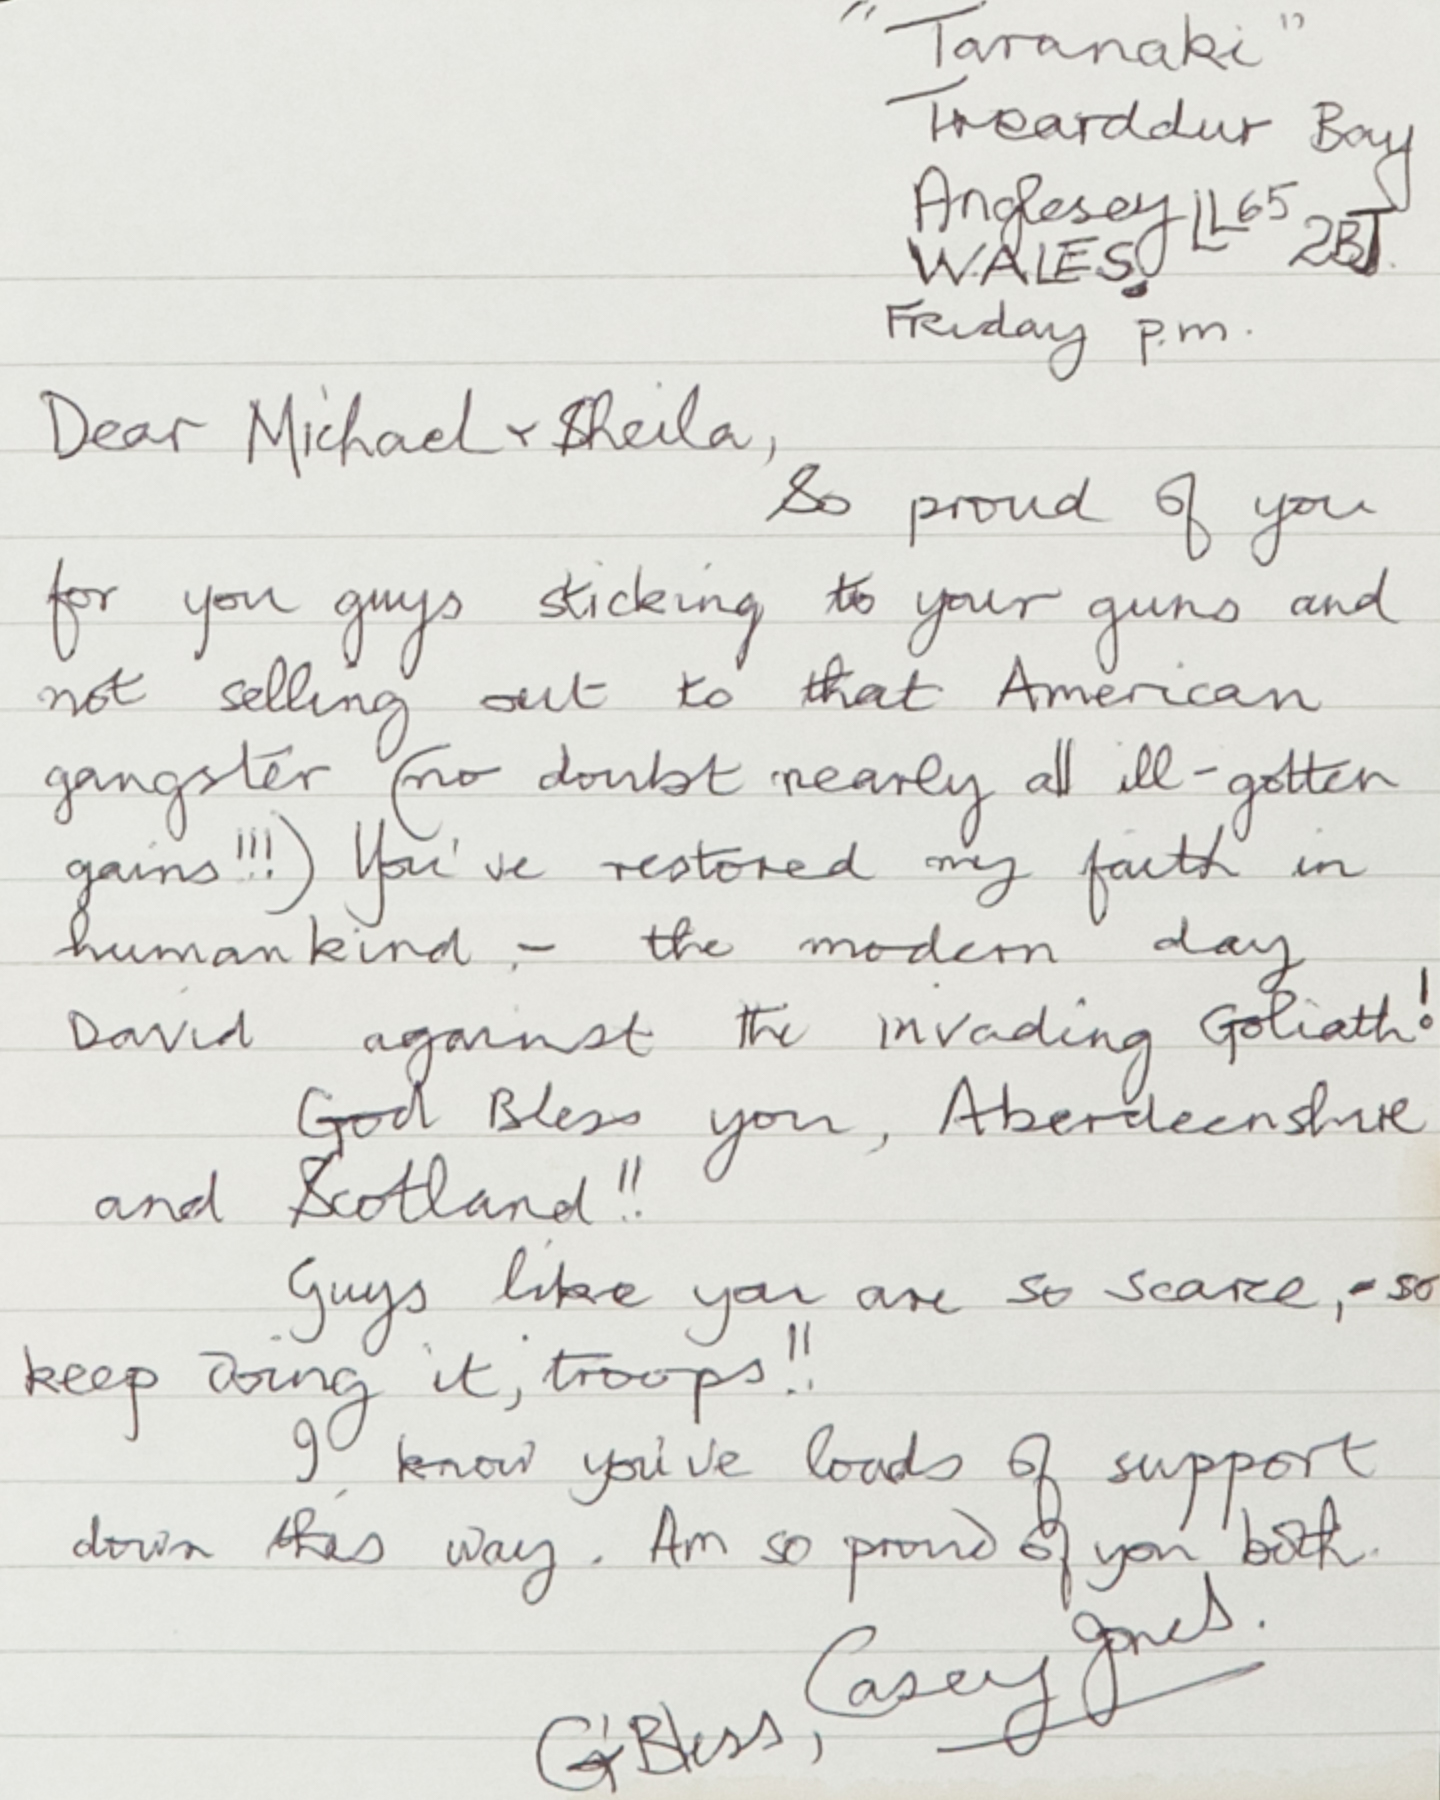 "Taranaki"
Trearddur Bay
Anglesey LL65 2BT
WALES.
Friday p.m.
Dear Michael + Sheila,
So proud of you
for you guys sticking to your guns and
not selling out to that American
gangster (no doubt nearly all ill-gotten
gains!!!) You've restored my faith in
humankind, - the modern day
David against the invading Goliath!
God Bless you, Aberdeenshire
and Scotland!!
Guys like you are so scarce, - so
keep doing it, troops!!
I know you've loads of support
down this way. Am so proud of you both.
G'Bless, Casey Jones.